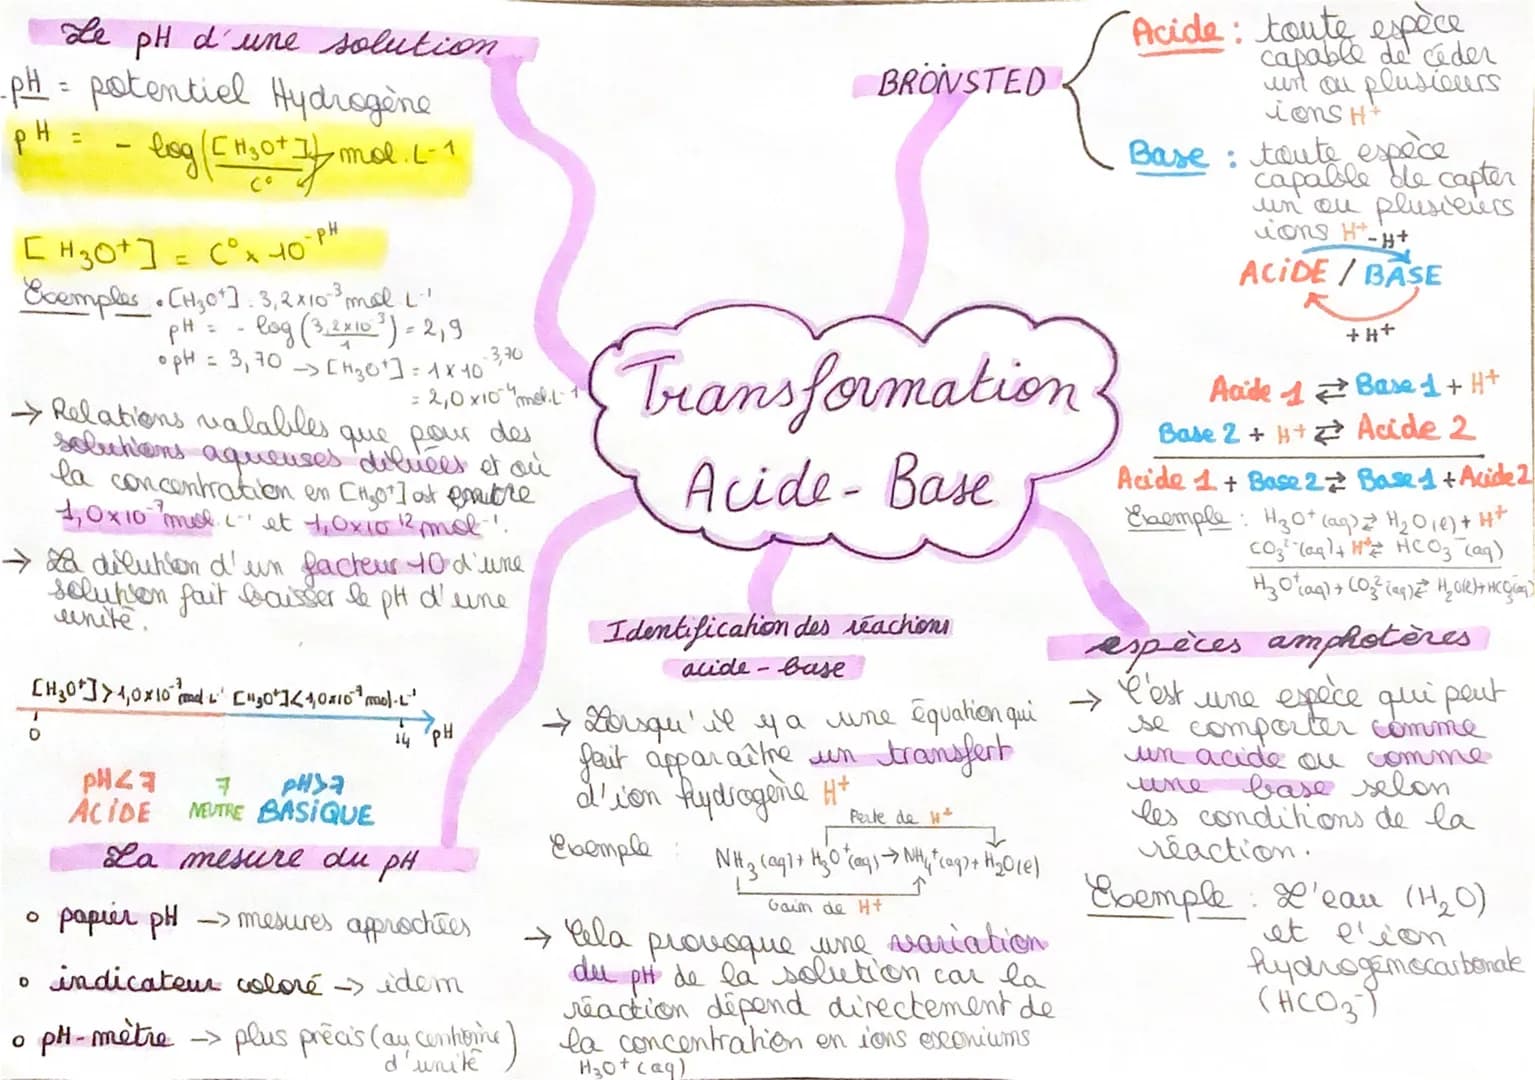 Le pH d'une solution
pH = potentiel Hydrogène
pH = - log([H3O+]/c°) mol.L-1
[H3O+] = C° x 10^-pH
Exemples • [H3O+] : 3,2x10^-3 mol L-1
pH = - log(3,2x10^-3/1) = 2,9
• pH = 3,70 → [H3O+] = 1x10^-3,70
= 2,0x10^-4 mol.L-1
→ Relations valables que pour des
solutions aqueuses diluées et où
la concentration en [H3O+] est entre
1,0x10^-7 mol L-1 et 1,0x10^12 mol-1.
→ La dilution d'un facteur 10 d'une
solution fait baisser le pH d'une
unité.
[H3O+]>1,0x10^-7 mol L-1 [H3O+]<1,0x10^-7 mol.L-1
0 14 pH
pH<7 7 pH>7
ACIDE NEUTRE BASIQUE
La mesure du pH
o papier pH → mesures approchées
o indicateur coloré → idem
o pH-mètre → plus précis (au centième
d'unité)
Transformation
Acide-Base
BRÖNSTED
Acide : toute espèce
capable de céder
un ou plusieurs
ions H+
Base : toute espèce
capable de capter
un ou plusieurs
ions H+
-H+
ACIDE / BASE
+H+
Acide 1 ⇄ Base 1 + H+
Base 2 + H+ ⇄ Acide 2
Acide 1 + Base 2 ⇄ Base 1 + Acide 2
Exemple : H3O+(aq) ⇄ H2O(l) + H+
CO3^2-(aq) + H+ ⇄ HCO3^-(aq)
H3O+(aq) + CO3^2-(aq) ⇄ H2O(l) + HCO3^-(aq)
Identification des réactions
acide-base
→ Lorsqu'il y a une équation qui
fait apparaître un transfert
d'ion hydrogène H+
Perte de H+
Exemple : NH3(aq) + H3O+(aq) → NH4+(aq) + H2O(l)
Gain de H+
→ Cela provoque une variation
du pH de la solution car la
réaction dépend directement de
la concentration en ions oxoniums
H3O+(aq)
espèces amphotères
→ C'est une espèce qui peut
se comporter comme
un acide ou comme
une base selon
les conditions de la
réaction.
Exemple : L'eau (H2O)
et l'ion
hydrogénocarbonate
(HCO3-)